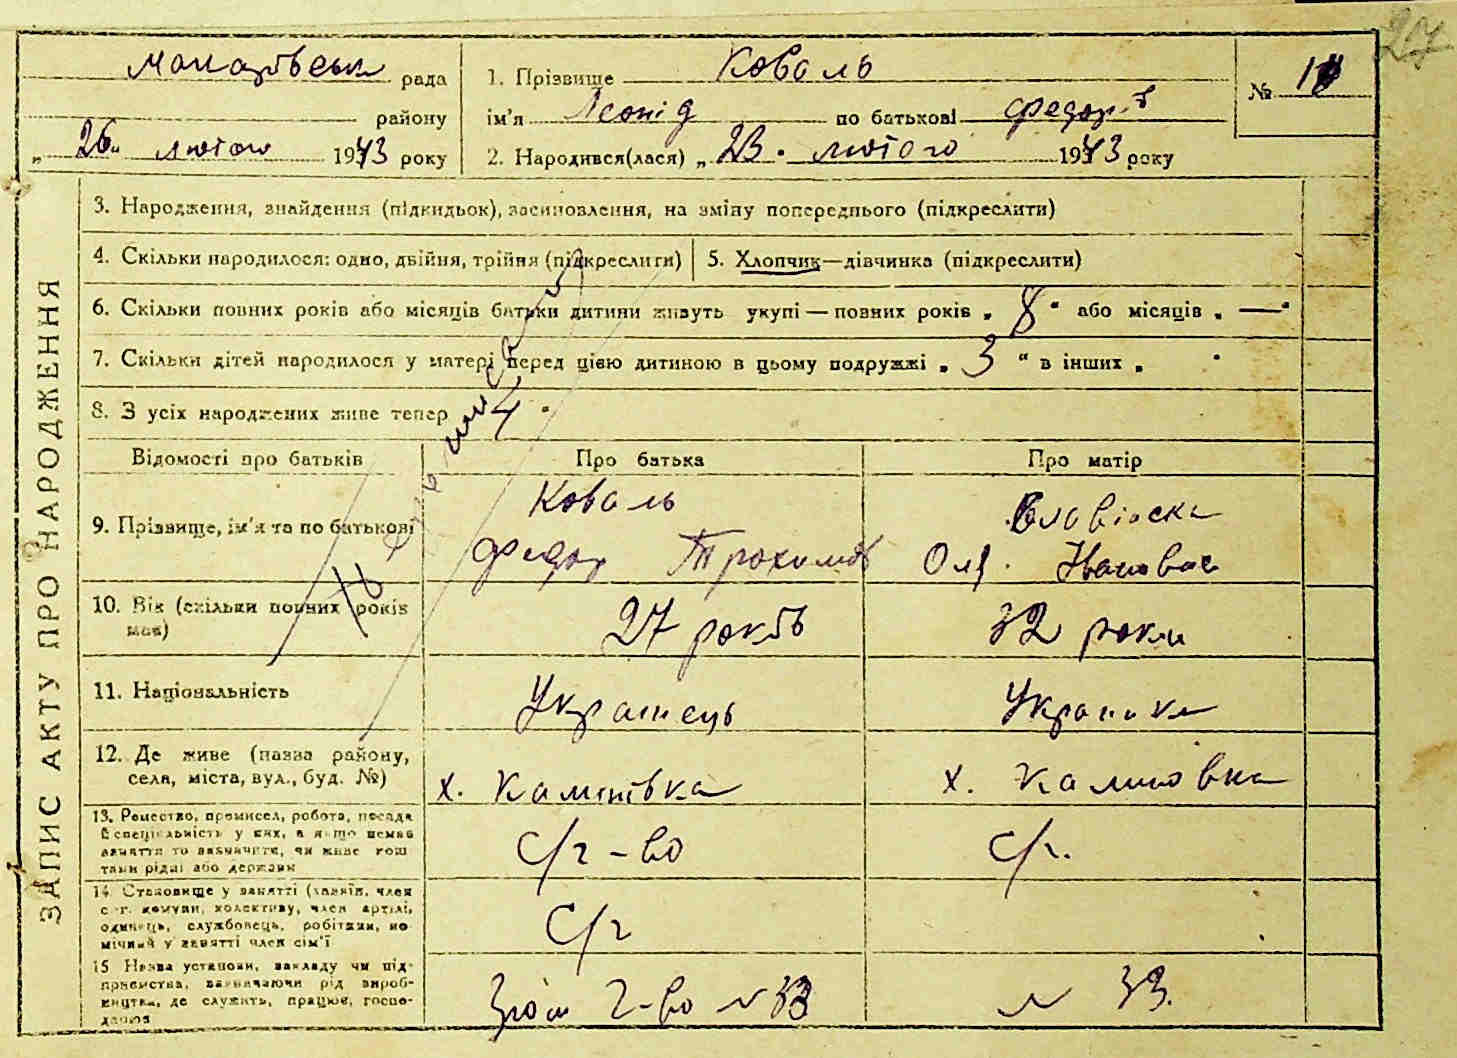 27
рада
1. Прізвище Коваль
№
району
ім'я Леонід по батькові Федор-ів
"26" лютого 1943 року
2. Народився(лася) "23" лютого 1943 року
ЗАПИС АКТУ ПРО НАРОДЖЕННЯ
3. Народження, знайдення (підкидьок), засиновлення, на зміну попереднього (підкреслити)
4. Скільки народилося: одно, двійня, трійня (підкреслити)
5. Хлопчик—дівчинка (підкреслити)
6. Скільки повних років або місяців батьки дитини живуть укупі — повних років „ 8 " або місяців „ — "
7. Скільки дітей народилося у матері перед цією дитиною в цьому подружжі „ 3 " в інших „ "
8. З усіх народжених живе тепер 4
Відомості про батьків
Про батька
Про матір
9. Прізвище, ім'я та по батькові
Коваль
Федор Трохимов
Оля. Ивановна
10. Вік (скільки повних років має)
27 років
32 роки
11. Національність
Українець
Українка
12. Де живе (назва району,
села, міста, вул., буд. №)
х. Калинівка
х. Калиновка
13. Ремество, промисел, робота, посада
й спеціальність у них, а якщо немає
заняття то зазначити, чи живе кош
тами рідні або держави
с/г-во
с/г.
14. Становище у занятті (хазяїн, член
с.-г. комуни, колективу, член артілі,
одинець, службовець, робітник, по
мічний у занятті член сім'ї
с/г
15. Назва установи, закладу чи під-
приємства, зазначаючи рід вироб-
ництва, де служить, працює, госпо-
дарює
г-во № 33
№ 33.